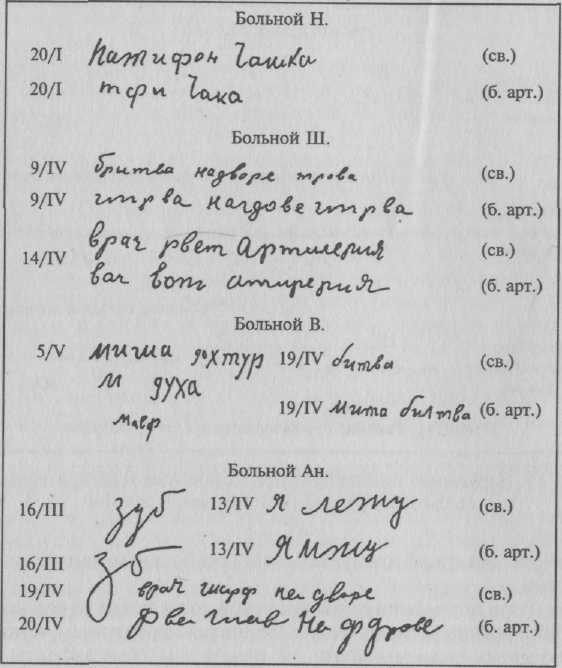 Больной Н.
20/I Патифон Чашка (св.)
20/I тфи Чака (б. арт.)
Больной Ш.
9/IV бритва надворе трова (св.)
9/IV штрва нагдове штрва (б. арт.)
14/IV врач рвет Артилерия (св.)
вач вот атирерия (б. арт.)
Больной В.
5/V миша дохтур 19/IV битва (св.)
м духа
мавф 19/IV мита битва (б. арт.)
Больной Ан.
16/III зуб 13/IV Я лежу (св.)
16/III зб 13/IV Я мжу (б. арт.)
19/IV врач шарф на дворе (св.)
20/IV На фдрове (б. арт.)